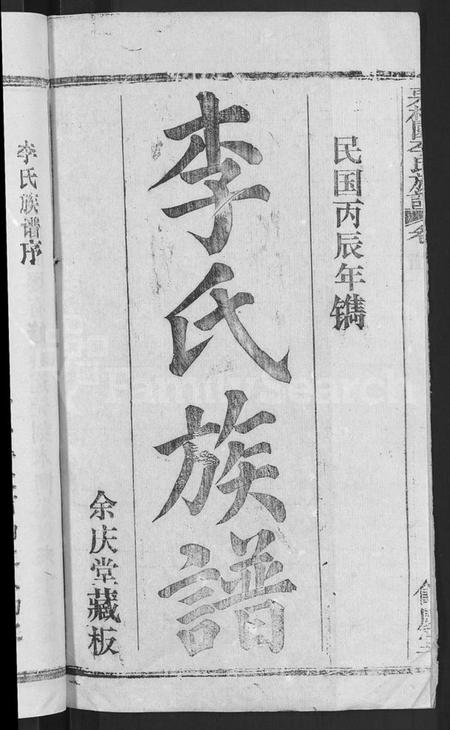 民国丙辰年镌
李氏族譜
余庆堂藏板
李氏族谱序
FamilySearch